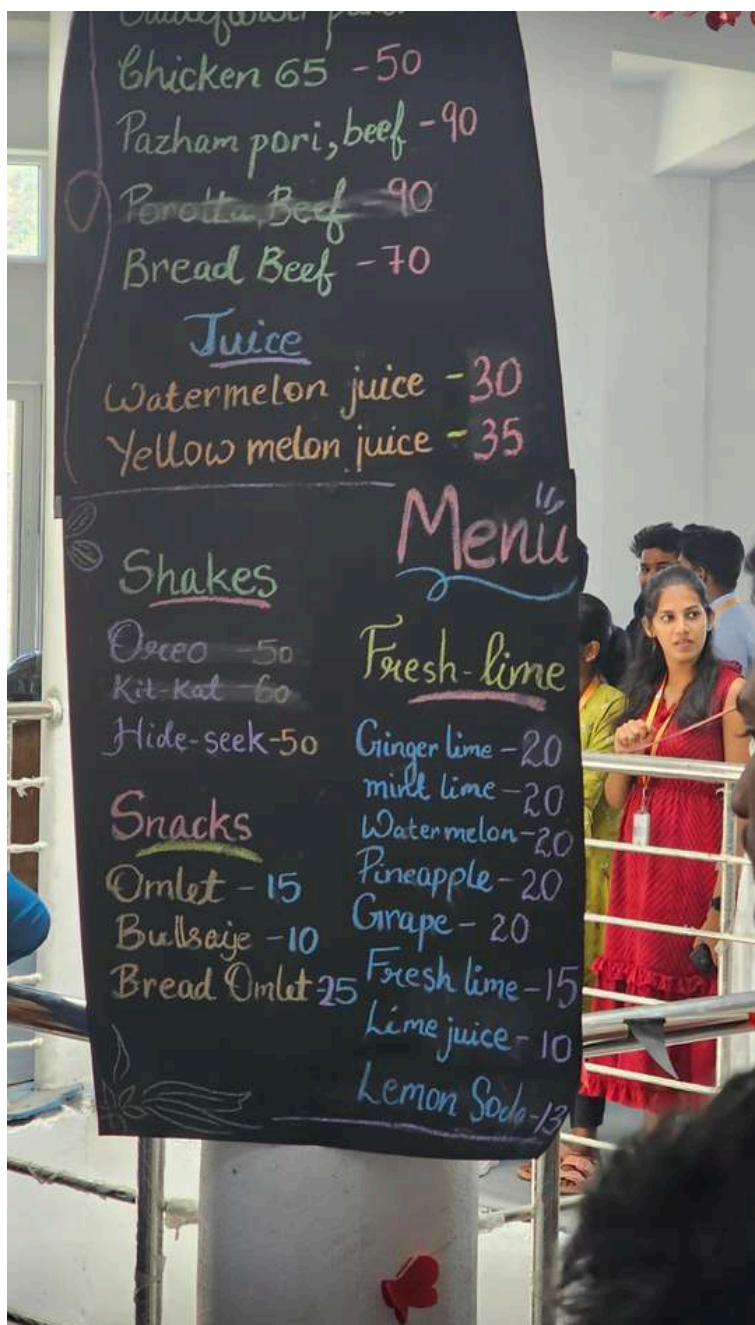 Chicken 65 - 50
Pazham pori, beef - 90
Porotta, Beef - 90
Bread Beef - 70
Juice
Watermelon juice - 30
Yellow melon juice - 35
Menu
Shakes
Oreo - 50
Kit-Kat - 60
Hide-seek - 50
Snacks
Omlet - 15
Bullseye - 10
Bread Omlet 25
Fresh-lime
Ginger lime - 20
mint lime - 20
Watermelon - 20
Pineapple - 20
Grape - 20
Fresh lime - 15
Lime juice - 10
Lemon Soda - 13